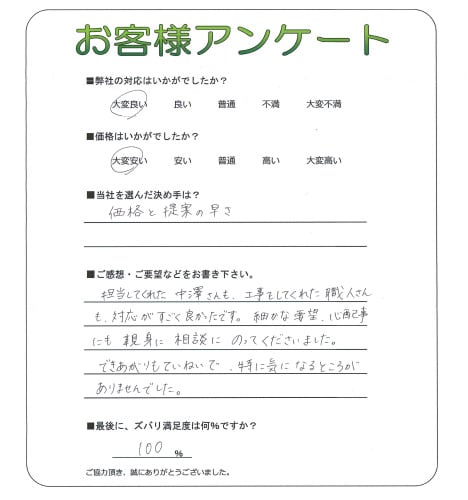 お客様アンケート
■弊社の対応はいかがでしたか？
大変良い 良い 普通 不満 大変不満
■価格はいかがでしたか？
大変安い 安い 普通 高い 大変高い
■当社を選んだ決め手は？
価格と提案の早さ
■ご感想・ご要望などをお書き下さい。
担当してくれた中澤さんも、工事をしてくれた職人さん
も、対応がすごく良かったです。細かな要望、心配事
にも親身に相談にのってくださいました。
できあがりもていねいで、特に気になるところが
ありませんでした。
■最後に、ズバリ満足度は何%ですか？
100 %
ご協力頂き、誠にありがとうございました。